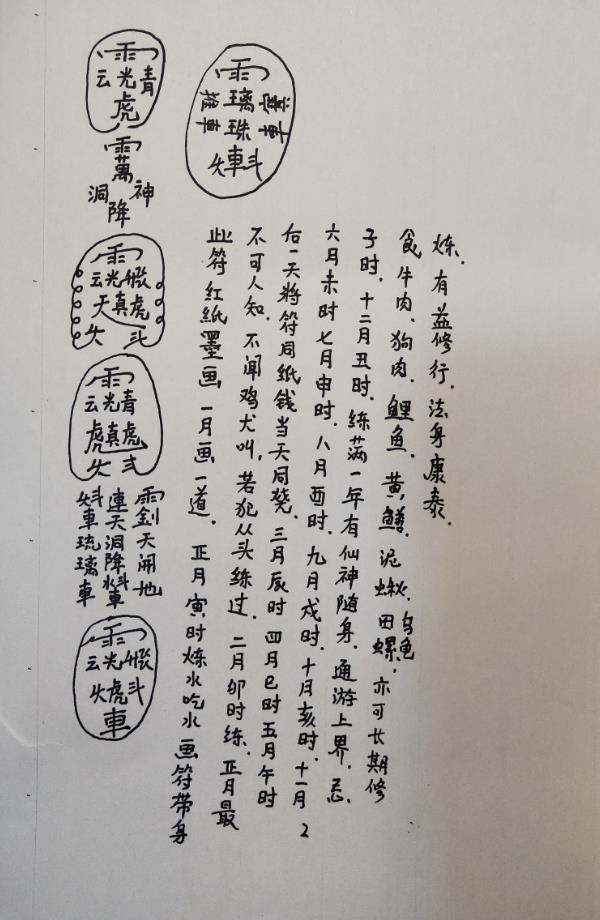 雨
云光青
虎
雨
萬
洞降神
雨
云光
天真虎
斗
雨
云光青
虎真虎
車琉璃車
連天洞降
雨釗天開地
雨
云光
虎斗
車
雨
推車
璃珠
車
此符红紙墨画一月画一道. 正月寅时炼水吃水画符带身
不可人知. 不闻鸡犬叫, 若犯从头练过. 二月卯时练. 正月最
后一天将符同纸钱当天同焚. 三月辰时四月巳时五月午时
六月未时七月申时. 八月酉时. 九月戌时. 十月亥时. 十一月 2
子时. 十二月丑时. 练满一年有仙神随身. 通游上界. 忌.
食牛肉、狗肉. 鲤鱼. 黄鳝. 泥鳅. 田螺. 乌龟. 亦可长期修
炼. 有益修行. 法身康泰.